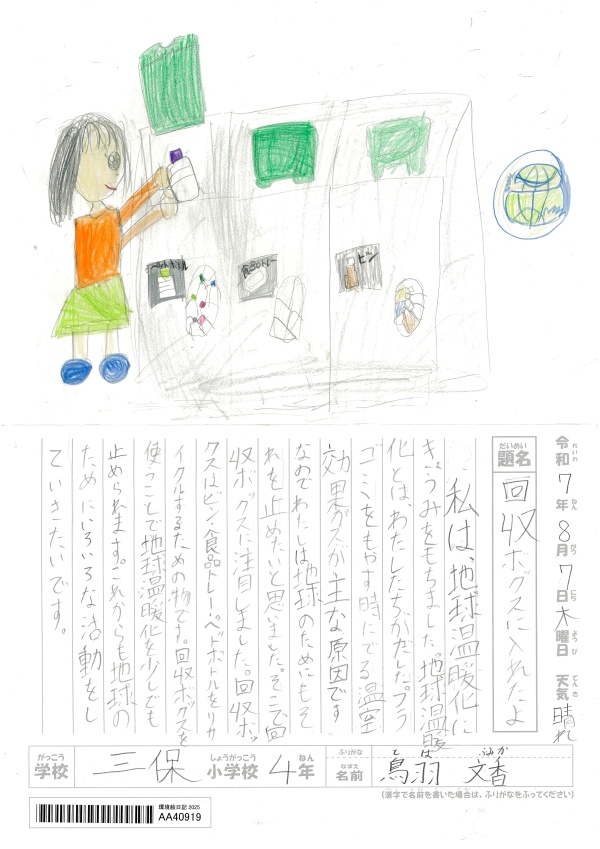 ペットボトル
食品トレー
ビン
令和7年8月7日木曜日 天気 晴れ
れいわ ねん がつ にち ようび てんき
だいめい
題名 回収ボクスに入れたよ
私は、地球温暖化に
きょうみをもちました。地球温暖
化とは、わたしたちがだしたプラ
ゴミをもやす時にでる温室
効果ガスが主な原因です
なのでわたしは地球のためにもそ
れを止めたいと思いました。そこで回
収ボックスに注目しました。回収ボッ
クスはビン・食品トレー・ペッドボトルをリサ
イクルするための物です。回収ボックスを
使うことで地球温暖化を少しでも
止められます。これからも地球の
ためにいろいろな活動をし
ていきたいです。
がっこう しょうがっこう ねん ふりがな とば ふみか
学校 三保 小学校 4年 なまえ 名前 鳥羽 文香
(漢字で名前を書いた場合は、ふりがなをふってください)
環境絵日記 2025
AA40919